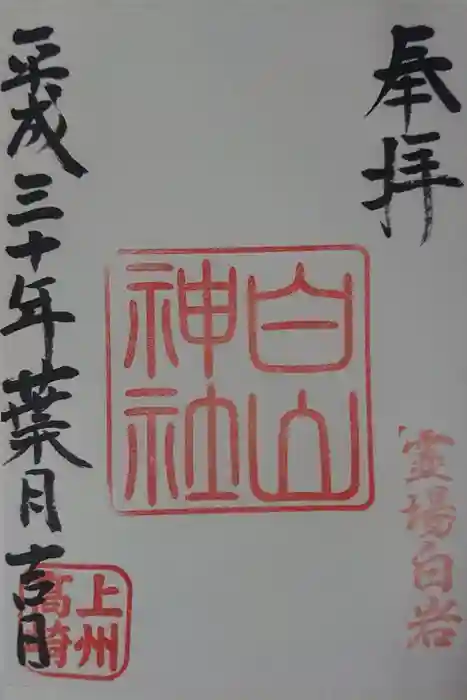 奉拝
霊場白岩
白山
神社
平成三十年葉月吉日
上州
高崎